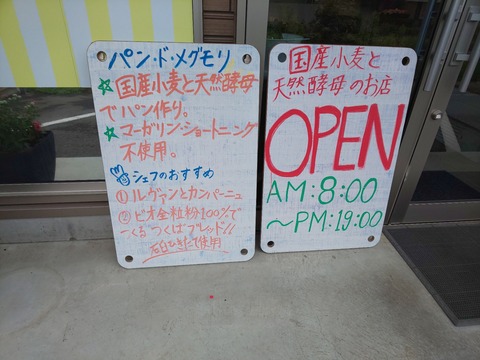 パン・ド・メグモリ
☆国産小麦と天然酵母
でパン作り。
☆マーガリン・ショートニング
不使用。
シェフのおすすめ
①ルヴァンとカンパーニュ
②ビオ全粒粉100%で
つくる つくばブレッド!!
石臼ひきたて使用
国産小麦と
天然酵母のお店
OPEN
AM:8:00
～PM:19:00